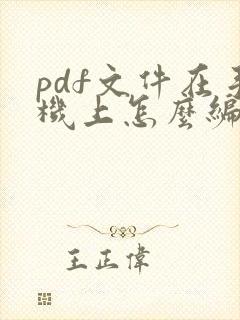 pdf文件在手
機上怎麼編
王正偉